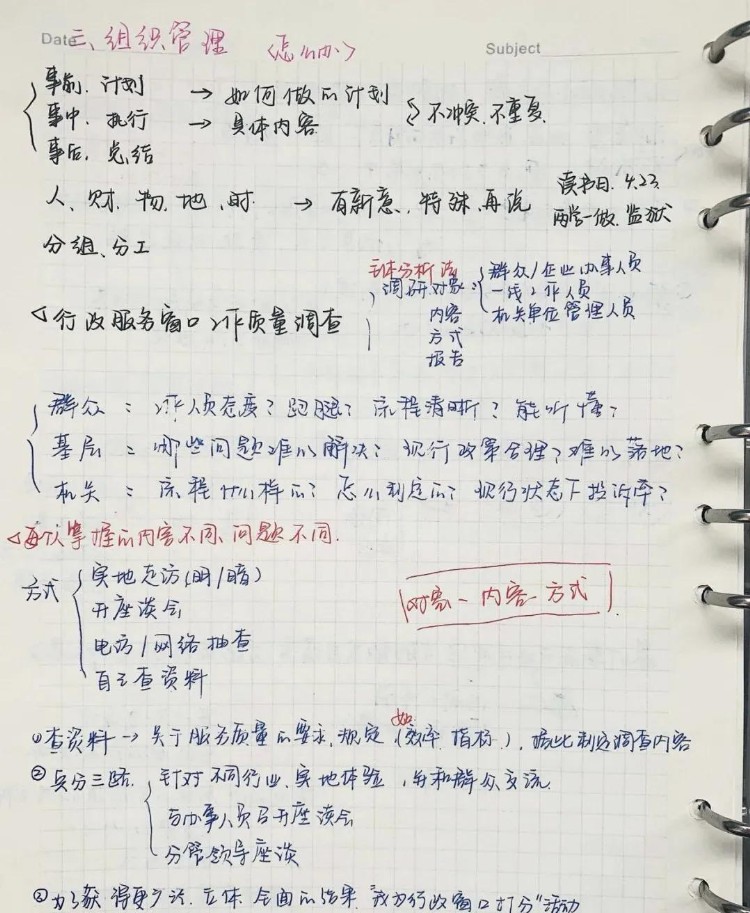 Date 三、组织管理 〈怎么办〉 Subject
事前. 计划 → 如何做的计划
事中. 执行 → 具体内容 不冲突.不重复.
事后. 总结
人、财.物.地.时. → 有新意.特殊.再说 读书日. 4.23.
两学一做.监狱
分组、分工
主体分析法
调研对象: 群众/企业办事人员
一线工作人员
机关单位管理人员
行政服务窗口工作质量调查
内容
方式
报告
群众: 工作人员态度?跑腿?流程清晰?能听懂?
基层: 哪些问题难以解决?现行政策合理?难以落地?
机关: 流程什么样的?怎么制定的?现行状态下投诉率?
每个人掌握的内容不同、问题不同.
方式 实地走访(明/暗)
开座谈会
电访/网络抽查
自己查资料
对象-内容-方式
①查资料→关于服务质量的要求.规定(如效率.指标),据此制定调查内容
②兵分三路. 针对不同行业.实地体验,并和群众交流.
与办事人员召开座谈会
分管领导座谈
③为了获得更多、立体.全面的结果."我为行政窗口打分"活动